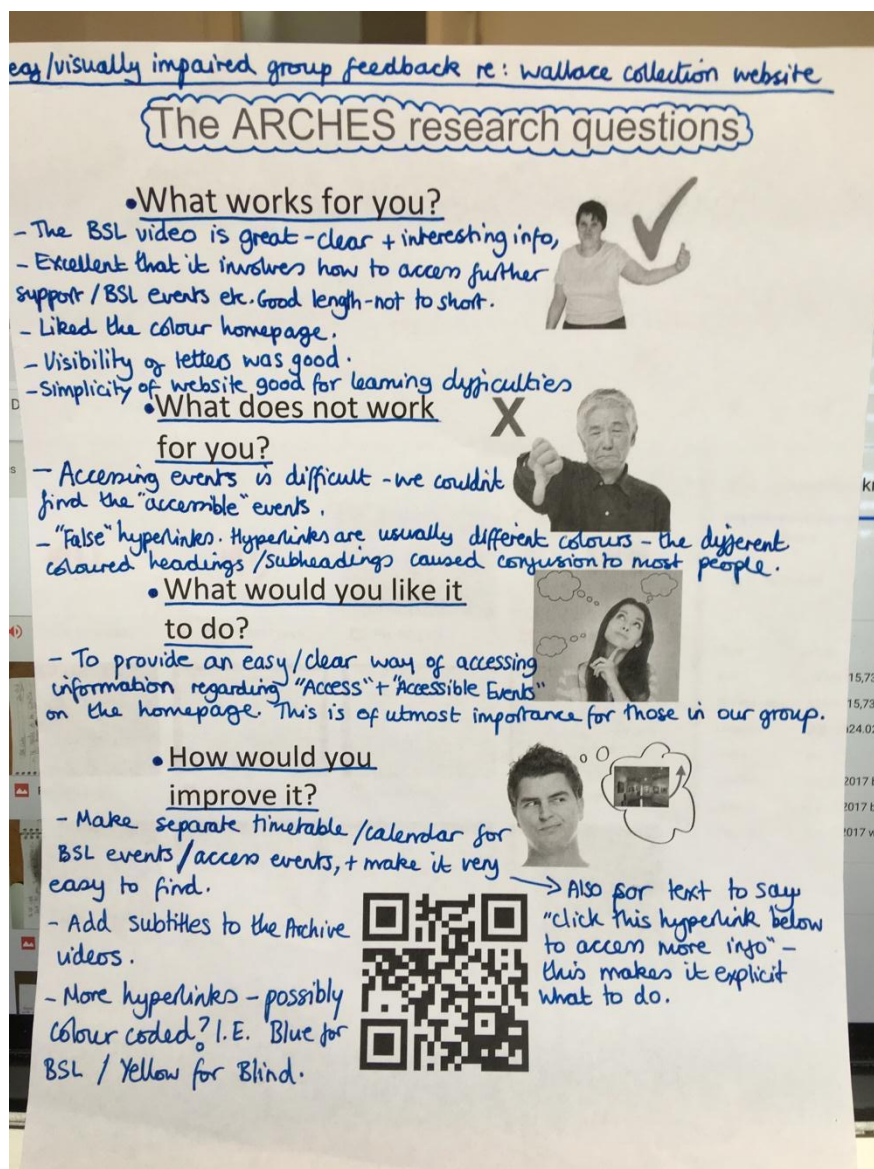 eaf/visually impaired group feedback re: wallace collection website
The ARCHES research questions
•What works for you?
- The BSL video is great - clear + interesting info,
- Excellent that it involves how to access further
support/BSL events etc. Good length - not to short.
- Liked the colour homepage.
- Visibility of letters was good.
- Simplicity of website good for learning difficulties
•What does not work
for you?
X
- Accessing events is difficult - we couldn't
find the "accessible" events.
- "False" hyperlinks. Hyperlinks are usually different colours - the different
coloured headings/subheadings caused confusion to most people.
• What would you like it
to do?
- To provide an easy/clear way of accessing
information regarding "Access" + "Accessible Events"
on the homepage. This is of utmost importance for those in our group.
• How would you
improve it?
- Make separate timetable/calendar for
BSL events/access events, + make it very
easy to find.
- Add subtitles to the Archive
videos.
- More hyperlinks - possibly
colour coded? I.E. Blue for
BSL / Yellow for Blind.
Also for text to say
"click this hyperlink below
to access more info" -
this makes it explicit
what to do.
15,73
15,73
24.02
2017
2017
2017